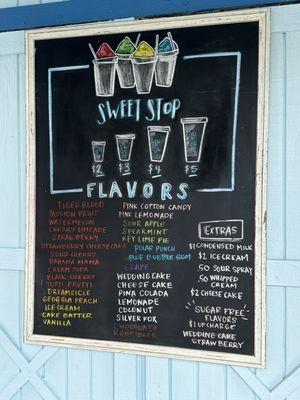 SWEET STOP
$2 $3 $4 $5
FLAVORS
TIGER BLOOD
PASSION FRUIT
WATERMELON
CHERRY LIMEADE
STRAWBERRY
STRAWBERRY CHEESECAKE
SOUR CHERRY
BAHAMA MAMA
CREAM SODA
BLACK CHERRY
TUTTI FRUTTI
DREAMSICLE
GEORGIA PEACH
ICE CREAM
CAKE BATTER
VANILLA
PINK COTTON CANDY
PINK LEMONADE
SOUR APPLE
SPEARMINT
KEY LIME PIE
POLAR PUNCH
BLUE BUBBLE GUM
GRAPE
WEDDING CAKE
CHEESE CAKE
PINA COLADA
LEMONADE
COCONUT
SILVER FOX
CHOCOLATE
ROOT BEER
EXTRAS
$1 CONDENSED MILK
$1 ICE CREAM
.50 SOUR SPRAY
.50 WHIPPED
CREAM
$2 CHEESE CAKE
SUGAR FREE
FLAVORS
$1 UPCHARGE
WEDDING CAKE
STRAWBERRY